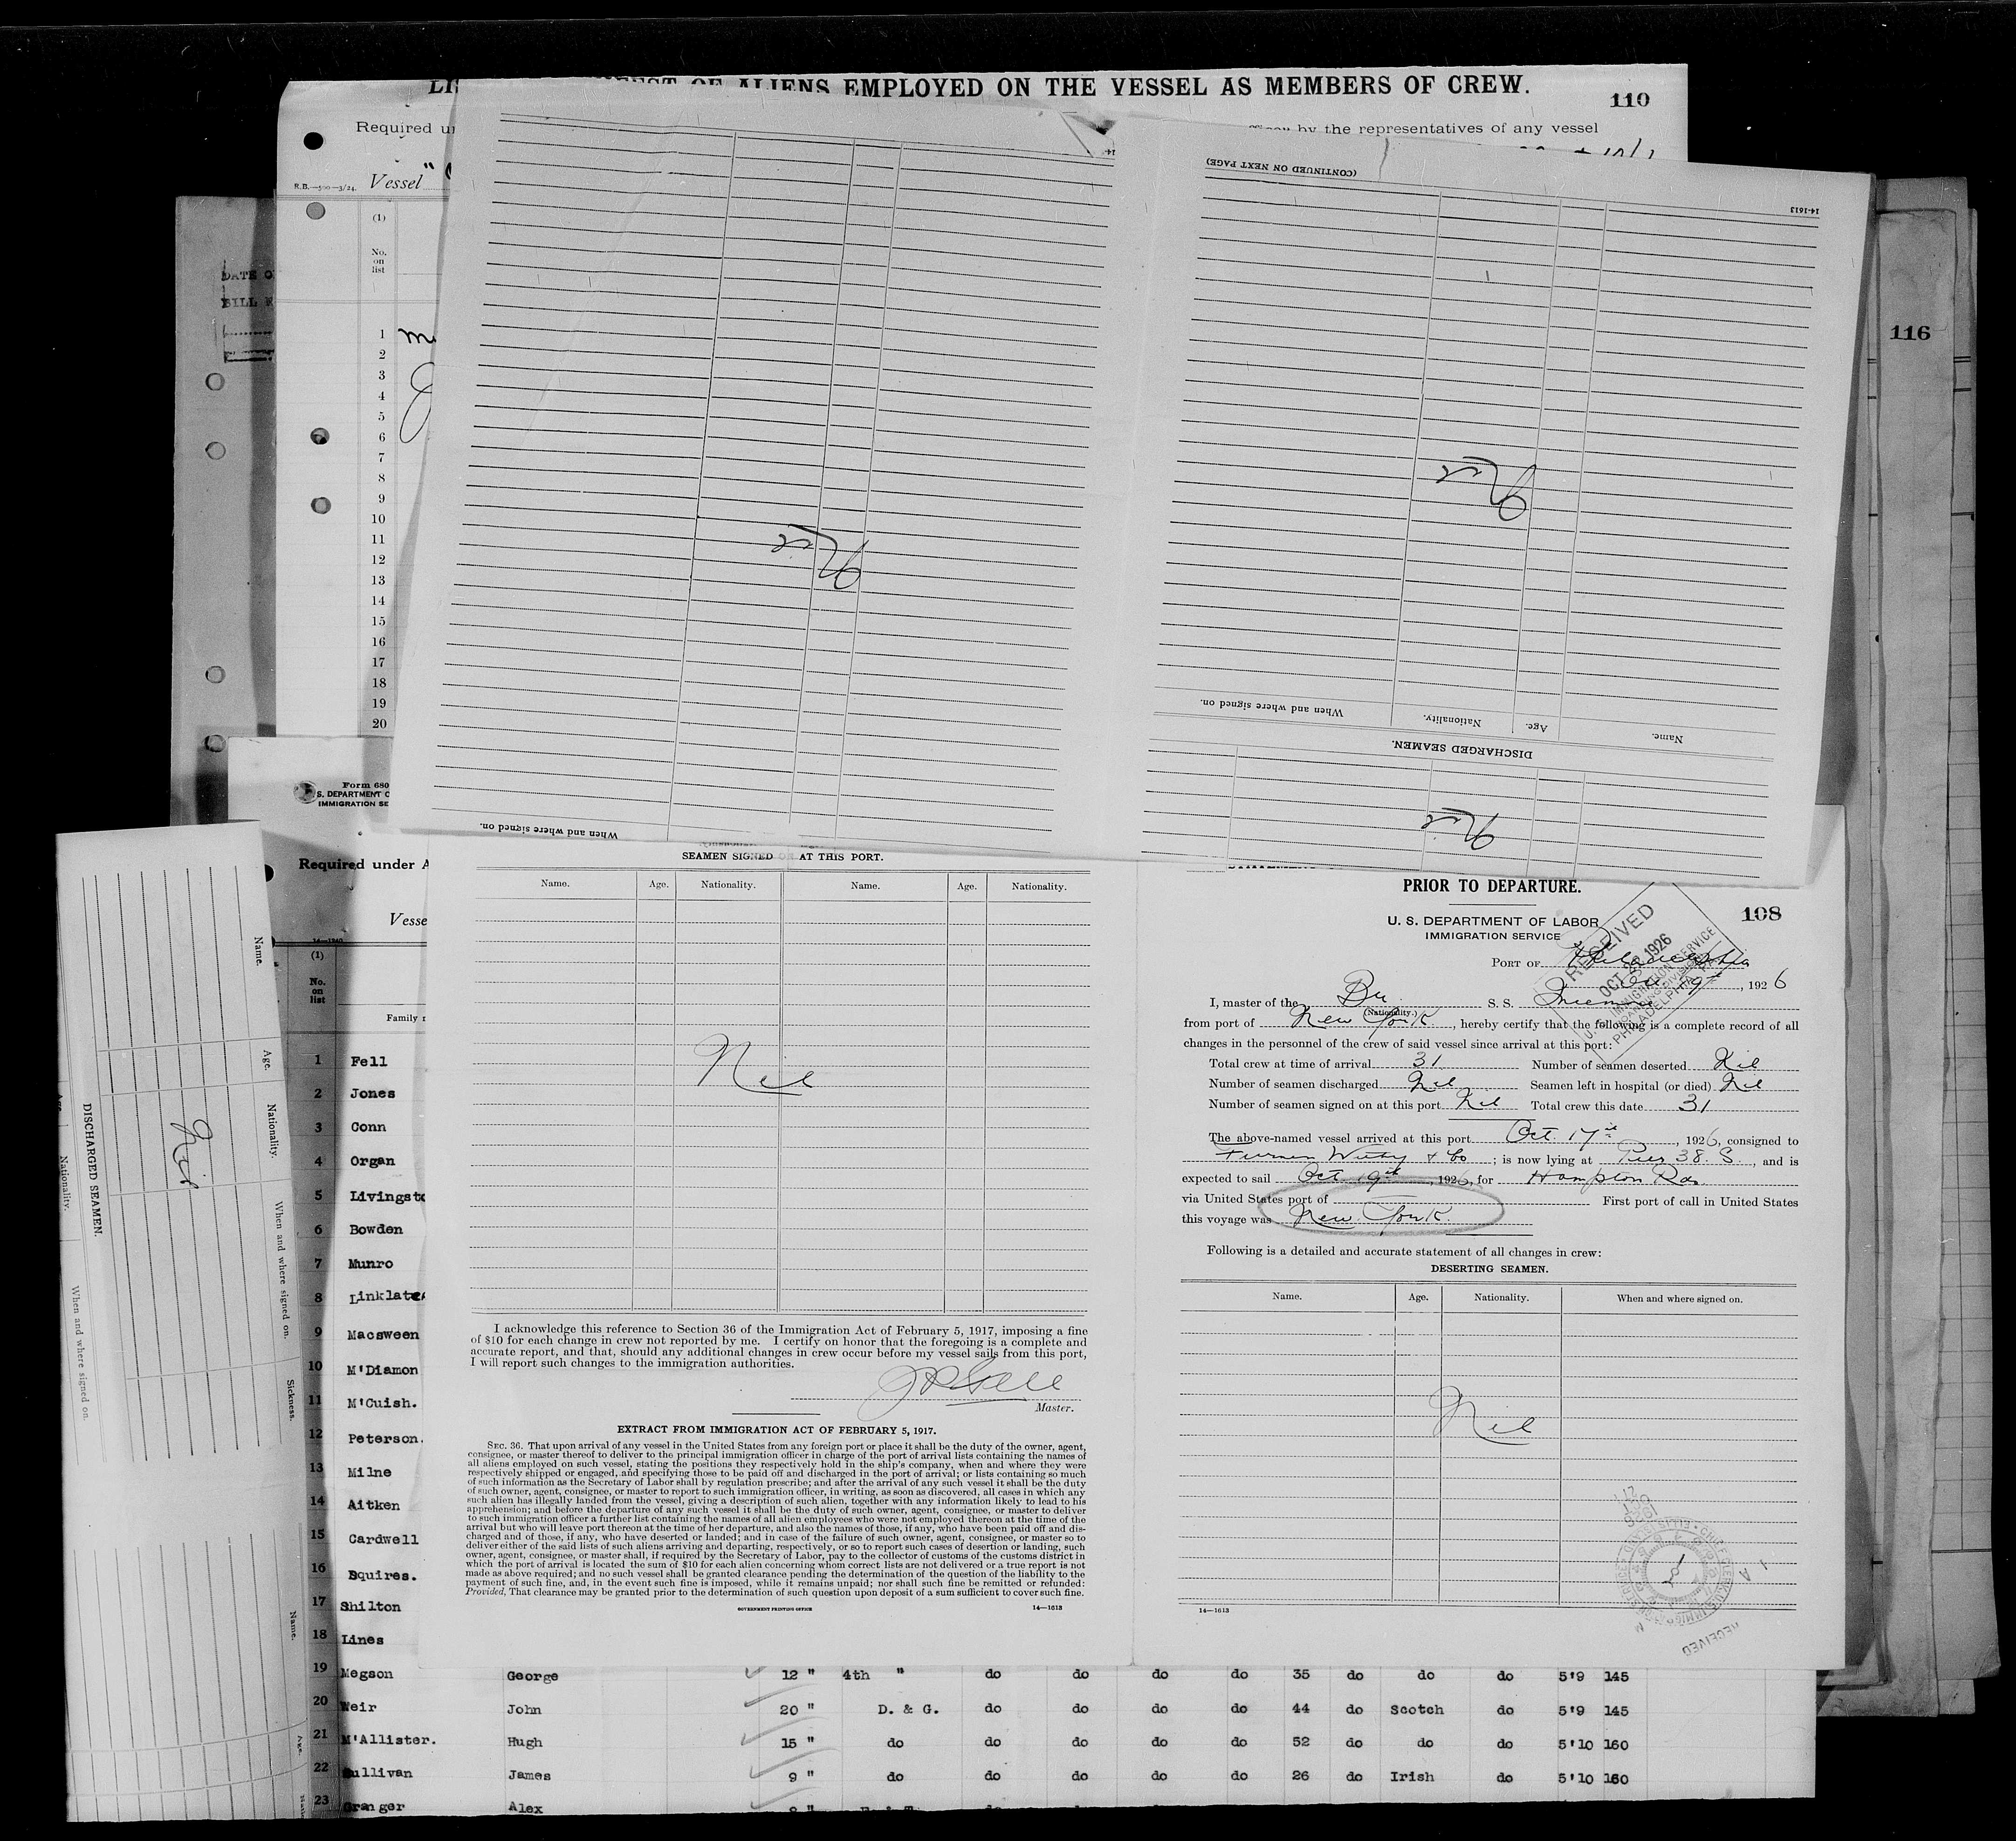 OF ALIENS EMPLOYED ON THE VESSEL AS MEMBERS OF CREW.
110
Required
by the representatives of any vessel
R.B.—500—3/24.
Vessel "
(1)
No.
on
list
1
2
3
4
5
6
7
8
9
10
11
12
13
14
15
16
17
18
19
20
116
(CONTINUED ON NEXT PAGE)
14-1613
Nil
Nil
When and where signed on.
Nationality.
Age.
Name.
DISCHARGED SEAMEN.
Nil
When and where signed on.
Form 680
S. DEPARTMENT
IMMIGRATION
Required under
(1)
No.
on
list
1 Fell
2 Jones
3 Conn
4 Organ
5
6 Bowden
7 Munro
8
9 Macsween
10 M'Diamon
11 M'Cuish.
12 Peterson.
13 Milne
14 Aitken
15 Cardwell
16 Squires.
17 Shilton
18 Lines
19 Megson George 12 " 4th " do do do do 35 do do do 5'9 145
20 Weir John 20 " D. & G. do do do do 44 do Scotch do 5'9 145
21 M'Allister. Hugh 15 " do do do do do 52 do do do 5'10 160
22 Sullivan James 9 " do do do do do 26 do Irish do 5'10 160
23 Granger Alex
Name.
Age.
Nationality.
When and where signed on.
DISCHARGED SEAMEN.
Nil
Nationality.
When and where signed on.
Sickness.
Name.
Age.
SEAMEN SIGNED ON AT THIS PORT.
Name. Age. Nationality. Name. Age. Nationality.
Nil
I acknowledge this reference to Section 36 of the Immigration Act of February 5, 1917, imposing a fine
of $10 for each change in crew not reported by me. I certify on honor that the foregoing is a complete and
accurate report, and that, should any additional changes in crew occur before my vessel sails from this port,
I will report such changes to the immigration authorities.
Master.
EXTRACT FROM IMMIGRATION ACT OF FEBRUARY 5, 1917.
SEC. 36. That upon arrival of any vessel in the United States from any foreign port or place it shall be the duty of the owner, agent,
consignee, or master thereof to deliver to the principal immigration officer in charge of the port of arrival lists containing the names of
all aliens employed on such vessel, stating the positions they respectively hold in the ship's company, when and where they were
respectively shipped or engaged, and specifying those to be paid off and discharged in the port of arrival; or lists containing so much
of such information as the Secretary of Labor shall by regulation prescribe; and after the arrival of any such vessel it shall be the duty
of such owner, agent, consignee, or master to report to such immigration officer, in writing, as soon as discovered, all cases in which any
such alien has illegally landed from the vessel, giving a description of such alien, together with any information likely to lead to his
apprehension; and before the departure of any such vessel it shall be the duty of such owner, agent, consignee, or master to deliver
to such immigration officer a further list containing the names of all alien employees who were not employed thereon at the time of the
arrival but who will leave port thereon at the time of her departure, and also the names of those, if any, who have been paid off and dis-
charged and of those, if any, who have deserted or landed; and in case of the failure of such owner, agent, consignee, or master so to
deliver either of the said lists of such aliens arriving and departing, respectively, or so to report such cases of desertion or landing, such
owner, agent, consignee, or master shall, if required by the Secretary of Labor, pay to the collector of customs of the customs district in
which the port of arrival is located the sum of $10 for each alien concerning whom correct lists are not delivered or a true report is not
made as above required; and no such vessel shall be granted clearance pending the determination of the question of the liability to the
payment of such fine, and, in the event such fine is imposed, while it remains unpaid; nor shall such fine be remitted or refunded:
Provided, That clearance may be granted prior to the determination of such question upon deposit of a sum sufficient to cover such fine.
GOVERNMENT PRINTING OFFICE 14—1613
PRIOR TO DEPARTURE.
108
U. S. DEPARTMENT OF LABOR
IMMIGRATION SERVICE
RECEIVED
PORT OF Philadelphia
Oct 19th, 1926
I, master of the Br S. S.
(Nationality.)
from port of New York, hereby certify that the following is a complete record of all
changes in the personnel of the crew of said vessel since arrival at this port:
Total crew at time of arrival 31 Number of seamen deserted Nil
Number of seamen discharged Nil Seamen left in hospital (or died) Nil
Number of seamen signed on at this port Nil Total crew this date 31
The above-named vessel arrived at this port Oct. 17th, 1926, consigned to
Furness Withy & Co; is now lying at Pier 38. S., and is
expected to sail Oct 19th, 1926, for Hampton Rds
via United States port of First port of call in United States
this voyage was New York
Following is a detailed and accurate statement of all changes in crew:
DESERTING SEAMEN.
Name. Age. Nationality. When and where signed on.
Nil
RECEIVED
14—1613